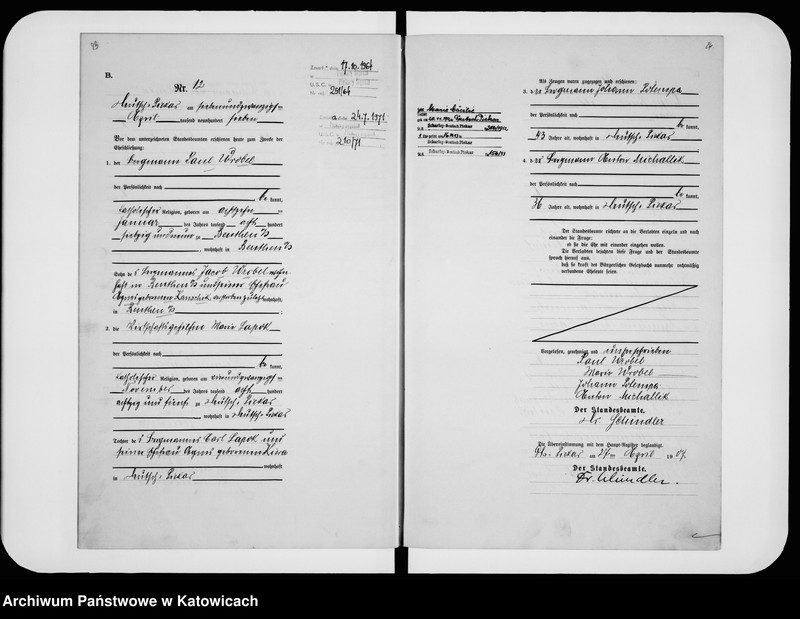 B.
Nr. 12
Deutsch Piekar am siebenundzwanzigsten
April tausend neunhundert sieben
Vor dem unterzeichneten Standesbeamten erschienen heute zum Zwecke der
Eheschließung:
1. der Bergmann Paul Wrobel
der Persönlichkeit nach
be kannt,
katholischer Religion, geboren am achtzehnten
Januar des Jahres tausend acht hundert
siebzig und neun zu Beuthen O/S
, wohnhaft in Beuthen O/S
Sohn des Bergmannes Jacob Wrobel wohn-
haft in Beuthen O/S und seiner Ehefrau
Agnes geborenen zuletzt wohnhaft
in Beuthen O/S ;
2. die Maria Lapok
der Persönlichkeit nach
be kannt,
katholischer Religion, geboren am vierundzwanzigsten
November des Jahres tausend acht hundert
achtzig und fünf zu Deutsch Piekar
, wohnhaft in Deutsch Piekar
Tochter des Bergmannes Carl Lapok und
seiner Ehefrau Agnes geborenen
wohnhaft
in Deutsch Piekar
17.10.1964
251/64
24.7.1971
210/71
Scharley-Deutsch Piekar
Scharley-Deutsch Piekar
Als Zeugen waren zugezogen und erschienen:
3. der Bergmann Johann Polempa
der Persönlichkeit nach
be kannt,
43 Jahre alt, wohnhaft in Deutsch Piekar
4. der Bergmann Anton Michallik
der Persönlichkeit nach
be kannt,
36 Jahre alt, wohnhaft in Deutsch Piekar
Der Standesbeamte richtete an die Verlobten einzeln und nach
einander die Frage:
ob sie die Ehe mit einander eingehen wollen.
Die Verlobten bejahten diese Frage und der Standesbeamte
sprach hierauf aus,
daß sie kraft des Bürgerlichen Gesetzbuchs nunmehr rechtmäßig
verbundene Eheleute seien.
Vorgelesen, genehmigt und unterschrieben
Paul Wrobel
Maria Wrobel
Johann Polempa
Anton Michallik
Der Standesbeamte.
Dr. Schindler
Die Übereinstimmung mit dem Haupt-Register beglaubigt.
Dt. Piekar am 27ten April 1907.
Der Standesbeamte.
Dr. Schindler.
Archiwum Państwowe w Katowicach